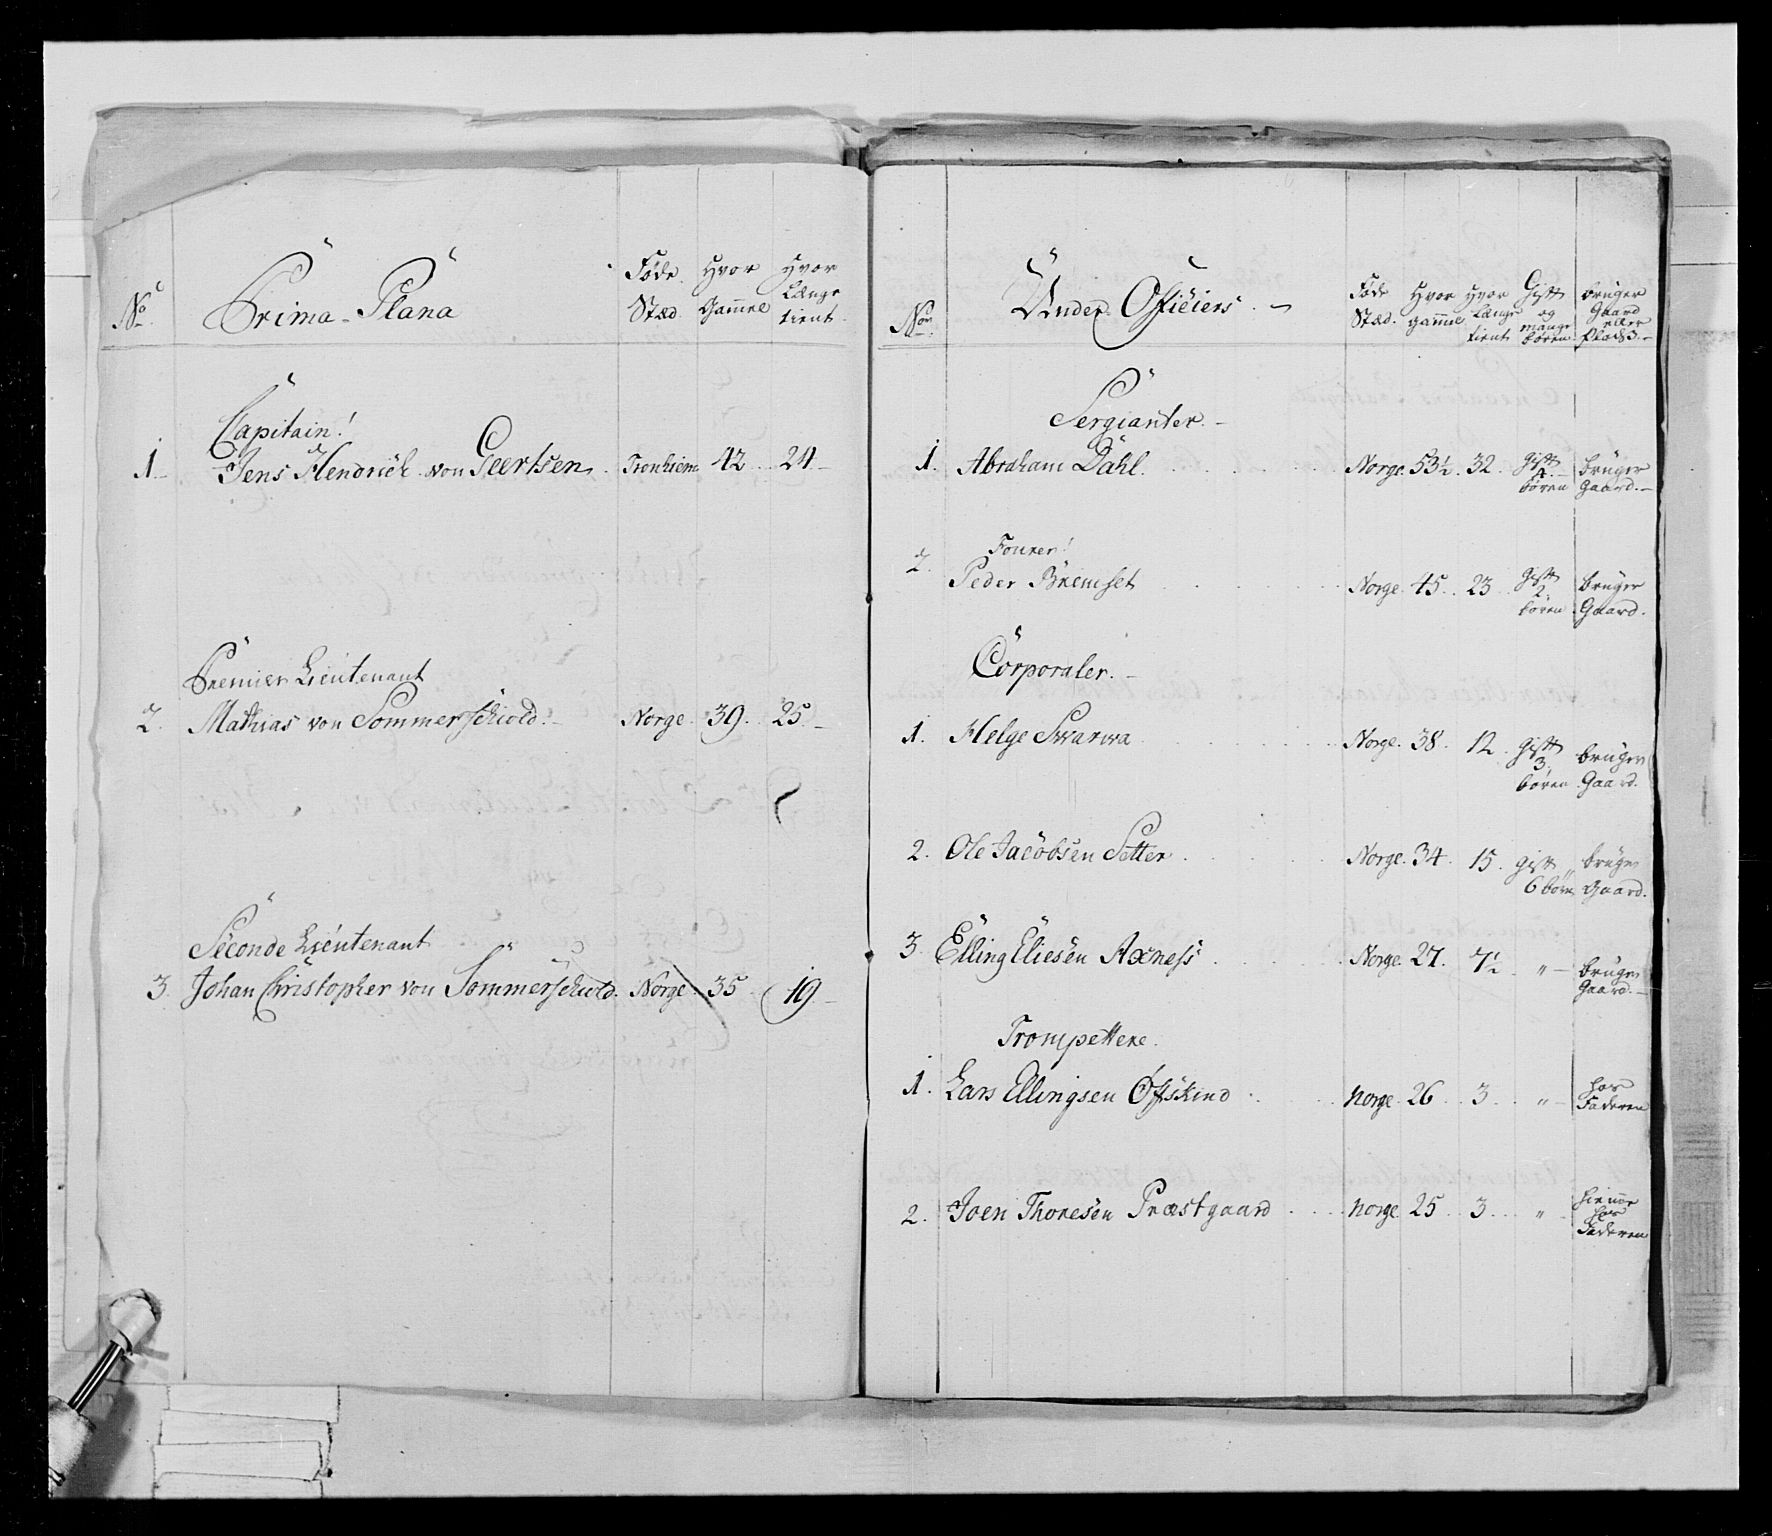 No Prima-Plana Føde Stæd. Hvor Gammel Hvor Længe tient.
Capitain!
1. Jens Hendrich von Geertsen. Tronhiem 42 24
Premier Lieutenant
2. Mathias von Sommerschiold. Norge 39. 25.
Seconde Lieutenant
3. Johan Christopher von Sommerschiold. Norge 35 19
Nor. Under Officiers. Føde Stæd. Hvor gammel Hvor Længe tient Gift og mange børen. bruger Gaard eller Plads.
Sergianter.
1. Abraham Dahl. Norge. 53½. 32. gift 4 børen bruger Gaard.
Fourer!
2. Peder Bremset Norge. 45. 23. gift 2 børen bruger Gaard.
Corporaler.
1. Helge Swarwa Norge. 38. 12. gift 3 børen bruger Gaard.
2. Ole Jacobsen Setter. Norge. 34. 15. gift 6 børn bruger Gaard.
3. Elling Eliesen Axness. Norge. 27. 7½ " bruger Gaard.
Trompettere.
1. Lars Ellingsen Øfskind Norge 26 3 " hos Faderen
2. Joen Thoresen Præstgaard Norge 25 3 " hiemme hos Faderen